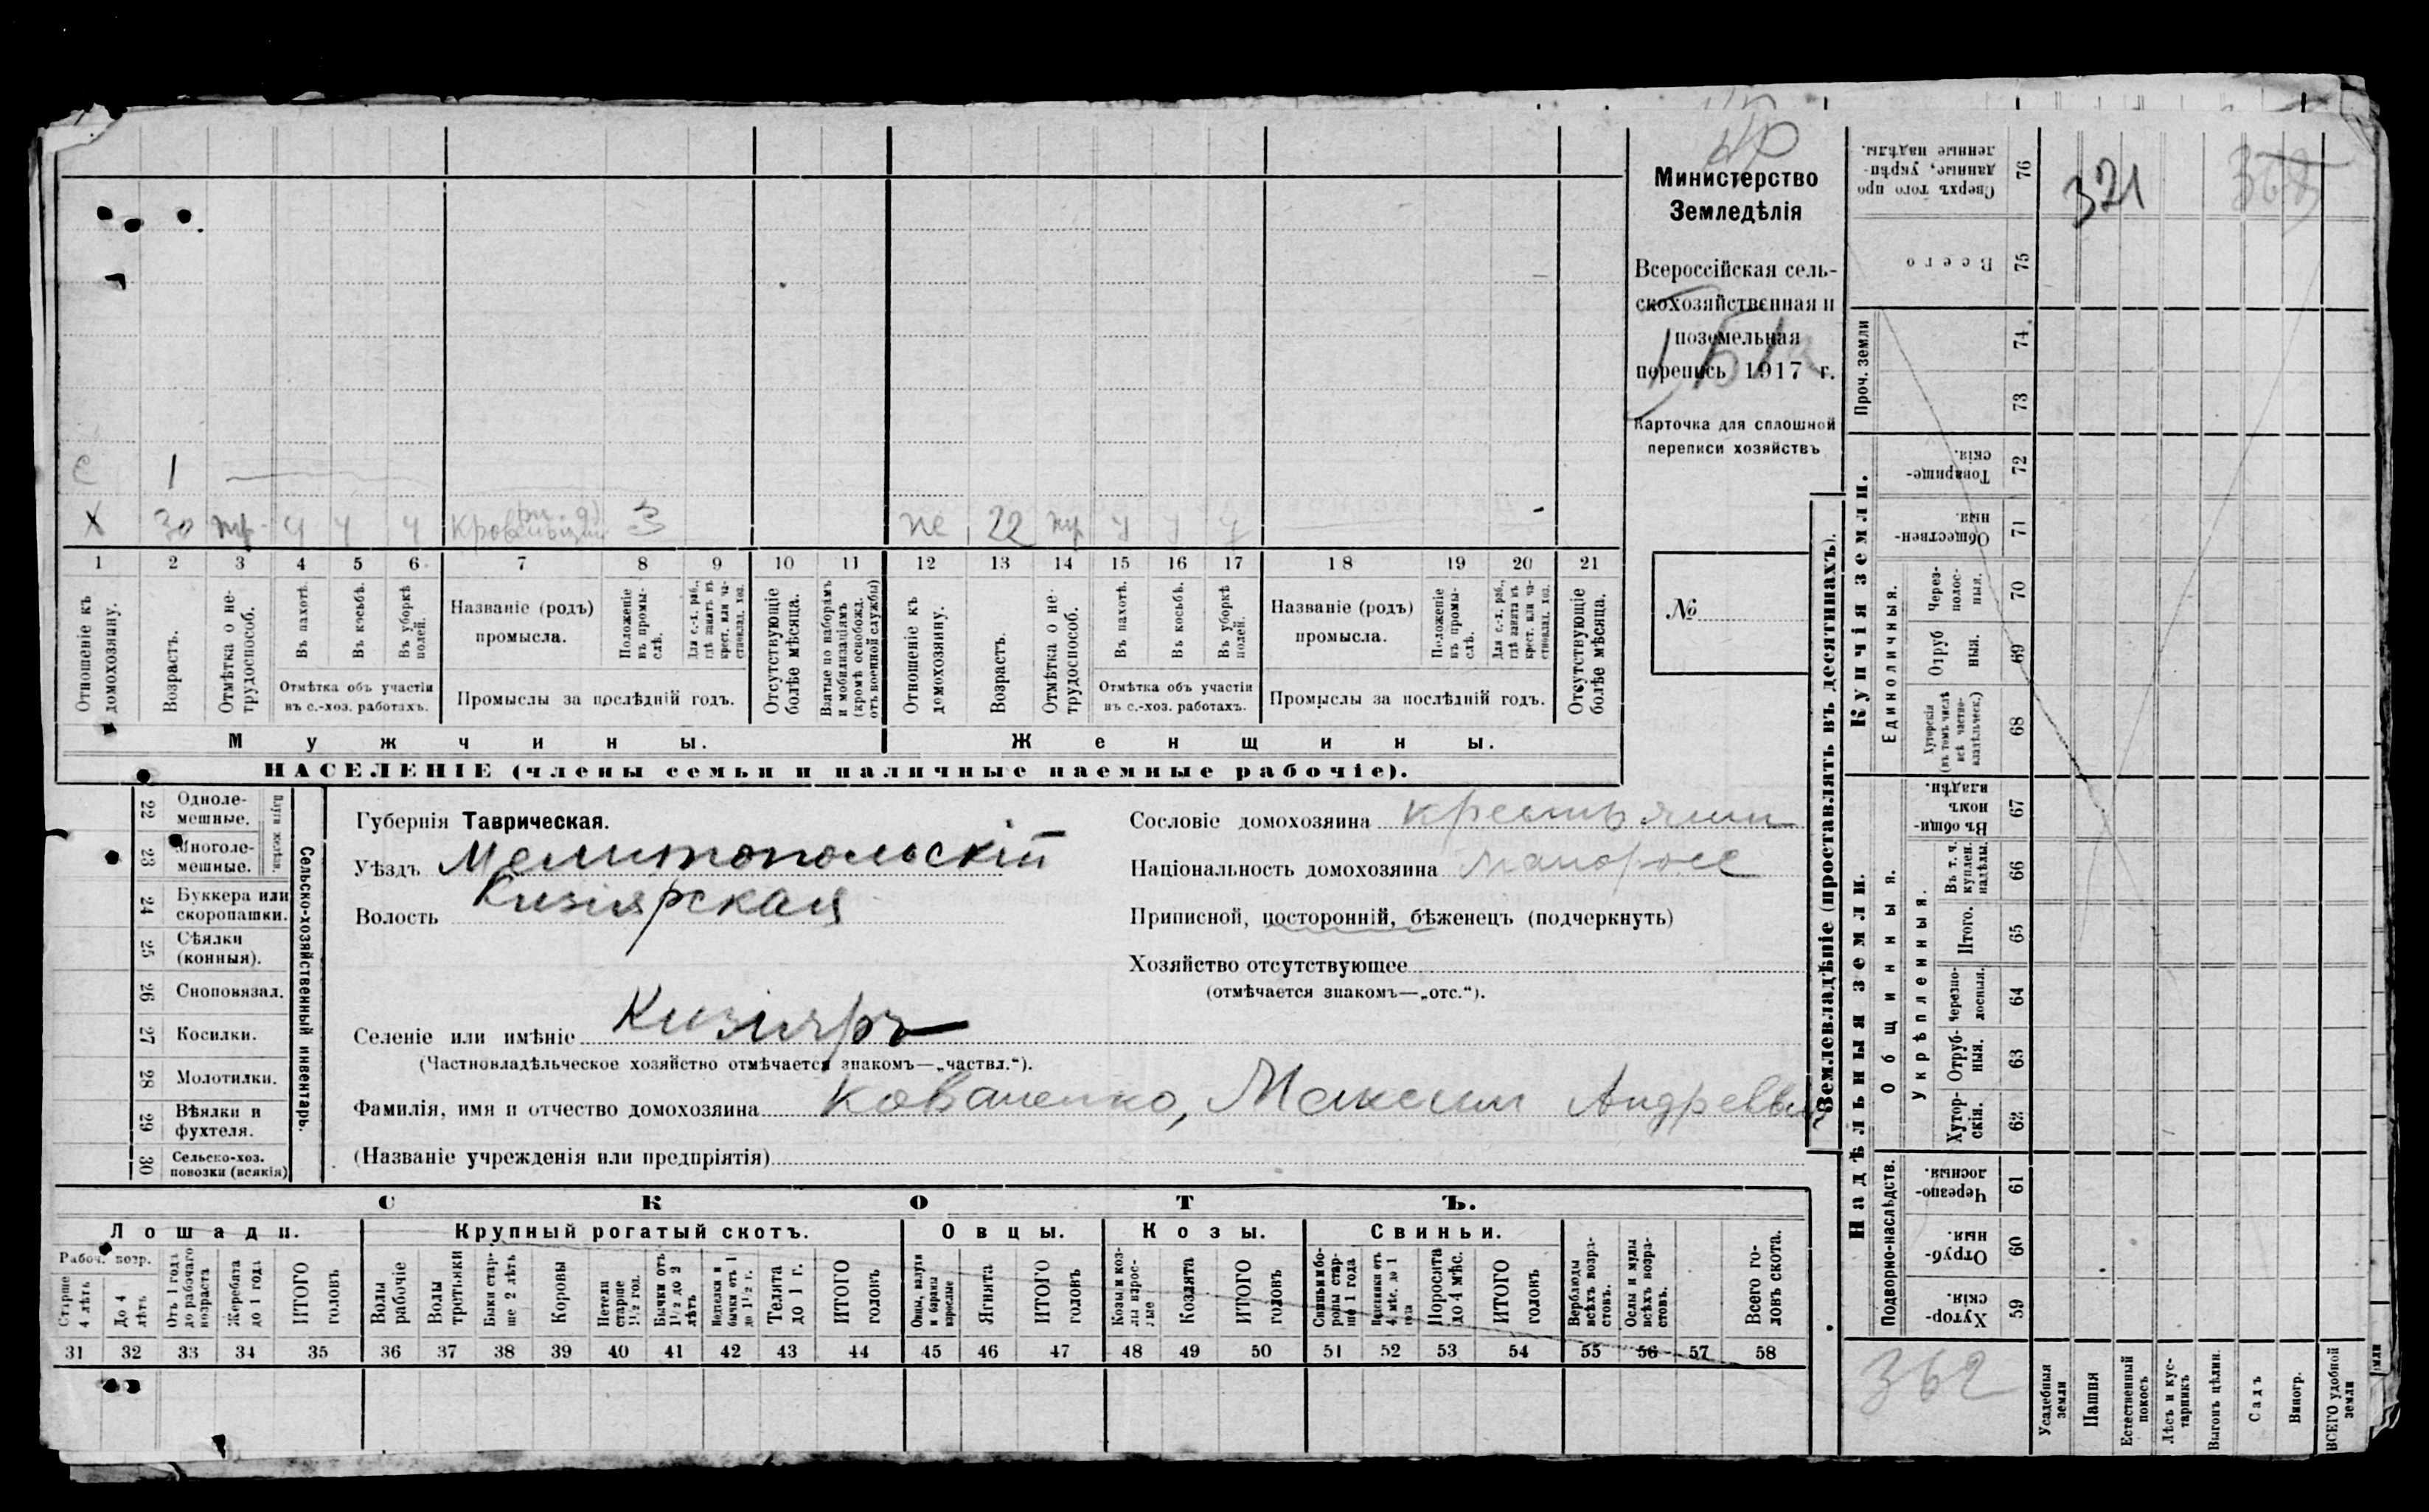 Министерство
Земледѣлія
Всероссійская сель-
скохозяйственная и
поземельная
перепись 1917 г.
Карточка для сплошной
переписи хозяйствъ
№
с 1
х 30 тр ч ч ч З
же 22 тр у у у
1 2 3 4 5 6 7 8 9 10 11 12 13 14 15 16 17 18 19 20 21
Отношеніе къ домохозяину.
Возрастъ.
Отмѣтка о не-трудоспособ.
Въ пахотѣ.
Въ косьбѣ.
Въ уборкѣ полей.
Отмѣтка объ участіи
въ с.-хоз. работахъ.
Названіе (родъ)
промысла.
Положеніе въ промы-слѣ.
Для с.-х. раб., гдѣ занятъ въ крест. или ча-стновлад. хоз.
Промыслы за послѣдній годъ.
Отсутствующіе болѣе мѣсяца.
Взятые по наборамъ и мобилизаціямъ (кромѣ освобожд. отъ военной службы)
Отношеніе къ домохозяину.
Возрастъ.
Отмѣтка о не-трудоспособ.
Въ пахотѣ.
Въ косьбѣ.
Въ уборкѣ полей.
Отмѣтка объ участіи
въ с.-хоз. работахъ.
Названіе (родъ)
промысла.
Положеніе въ промы-слѣ.
Для с.-х. раб., гдѣ занята въ крест. или ча-стновлад. хоз.
Промыслы за послѣдній годъ.
Отсутствующіе болѣе мѣсяца.
Мужчины.
Женщины.
НАСЕЛЕНІЕ (члены семьи и наличные наемные рабочіе).
Сельско-хозяйственный инвентарь.
22 Одноле-мешные.
23 Многоле-мешные.
24 Буккера или скоропашки.
25 Сѣялки (конныя).
26 Сноповязал.
27 Косилки.
28 Молотилки.
29 Вѣялки и фухтеля.
30 Сельско-хоз. повозки (всякія)
Губернія Таврическая.
Уѣздъ Мелитопольскій
Волость Кизіярская
Селеніе или имѣніе Кизіяръ
(Частновладѣльческое хозяйство отмѣчается знакомъ—„частвл.“).
Фамилія, имя и отчество домохозяина Коваленко, Максим Андреевич
(Названіе учрежденія или предпріятія)
Сословіе домохозяина крестьянин
Національность домохозяина малорос
Приписной, посторонній, бѣженецъ (подчеркнуть)
Хозяйство отсутствующее
(отмѣчается знакомъ—„отс.“).
СКОТЪ.
Лошади. Крупный рогатый скотъ. Овцы. Козы. Свиньи.
Рабоч. возр.
Старше 4 лѣтъ
До 4 лѣтъ
Отъ 1 года до рабочаго возраста
Жеребята до 1 года
ИТОГО головъ
Волы рабочіе
Волы третьяки
Быки стар-ше 2 лѣтъ
Коровы
Нетели старше 1½ год.
Бычки отъ 1½ до 2 лѣтъ
Телята до 1 г.
ИТОГО головъ
Ягнята
ИТОГО головъ
Козы и коз-лы взрос-лые
Козлята
ИТОГО головъ
Свиньи и бо-ровы стар-ше 1 года
Поросята до 4 мѣс.
ИТОГО головъ
Верблюды всѣхъ возра-стовъ.
Ослы и мулы всѣхъ возра-стовъ.
Всего го-ловъ скота.
31 32 33 34 35 36 37 38 39 40 41 42 43 44 45 46 47 48 49 50 51 52 53 54 55 56 57 58
Землевладѣніе (проставлять въ десятинахъ).
Купчія земли.
Надѣльныя земли.
Сверхъ того про-данные, укрѣп-ленные надѣлы. 76
Всего 75
Проч. земли
74
73
Товарище-скія. 72
Обществен-ныя. 71
Единоличныя.
Через-полос-ныя. 70
Отруб-ныя. 69
Хуторскія (въ томъ числѣ всѣ частно-владѣльческ.) 68
Общинныя.
Въ общи-номъ владѣн. 67
Укрѣпленныя.
Въ т. ч. куплен. надѣлы. 66
Итого. 65
Черезпо-лосныя. 64
Отруб-ныя. 63
Хутор-скія. 62
Подворно-наслѣдств.
Черезпо-лосныя. 61
Отруб-ныя. 60
Хутор-скія. 59
321
362
Усадебныя земли
Пашня
Естественный покосъ
Лѣсъ и кус-тарникъ
Выгонъ цѣлин.
Садъ
Виногр.
ВСЕГО удобной земли